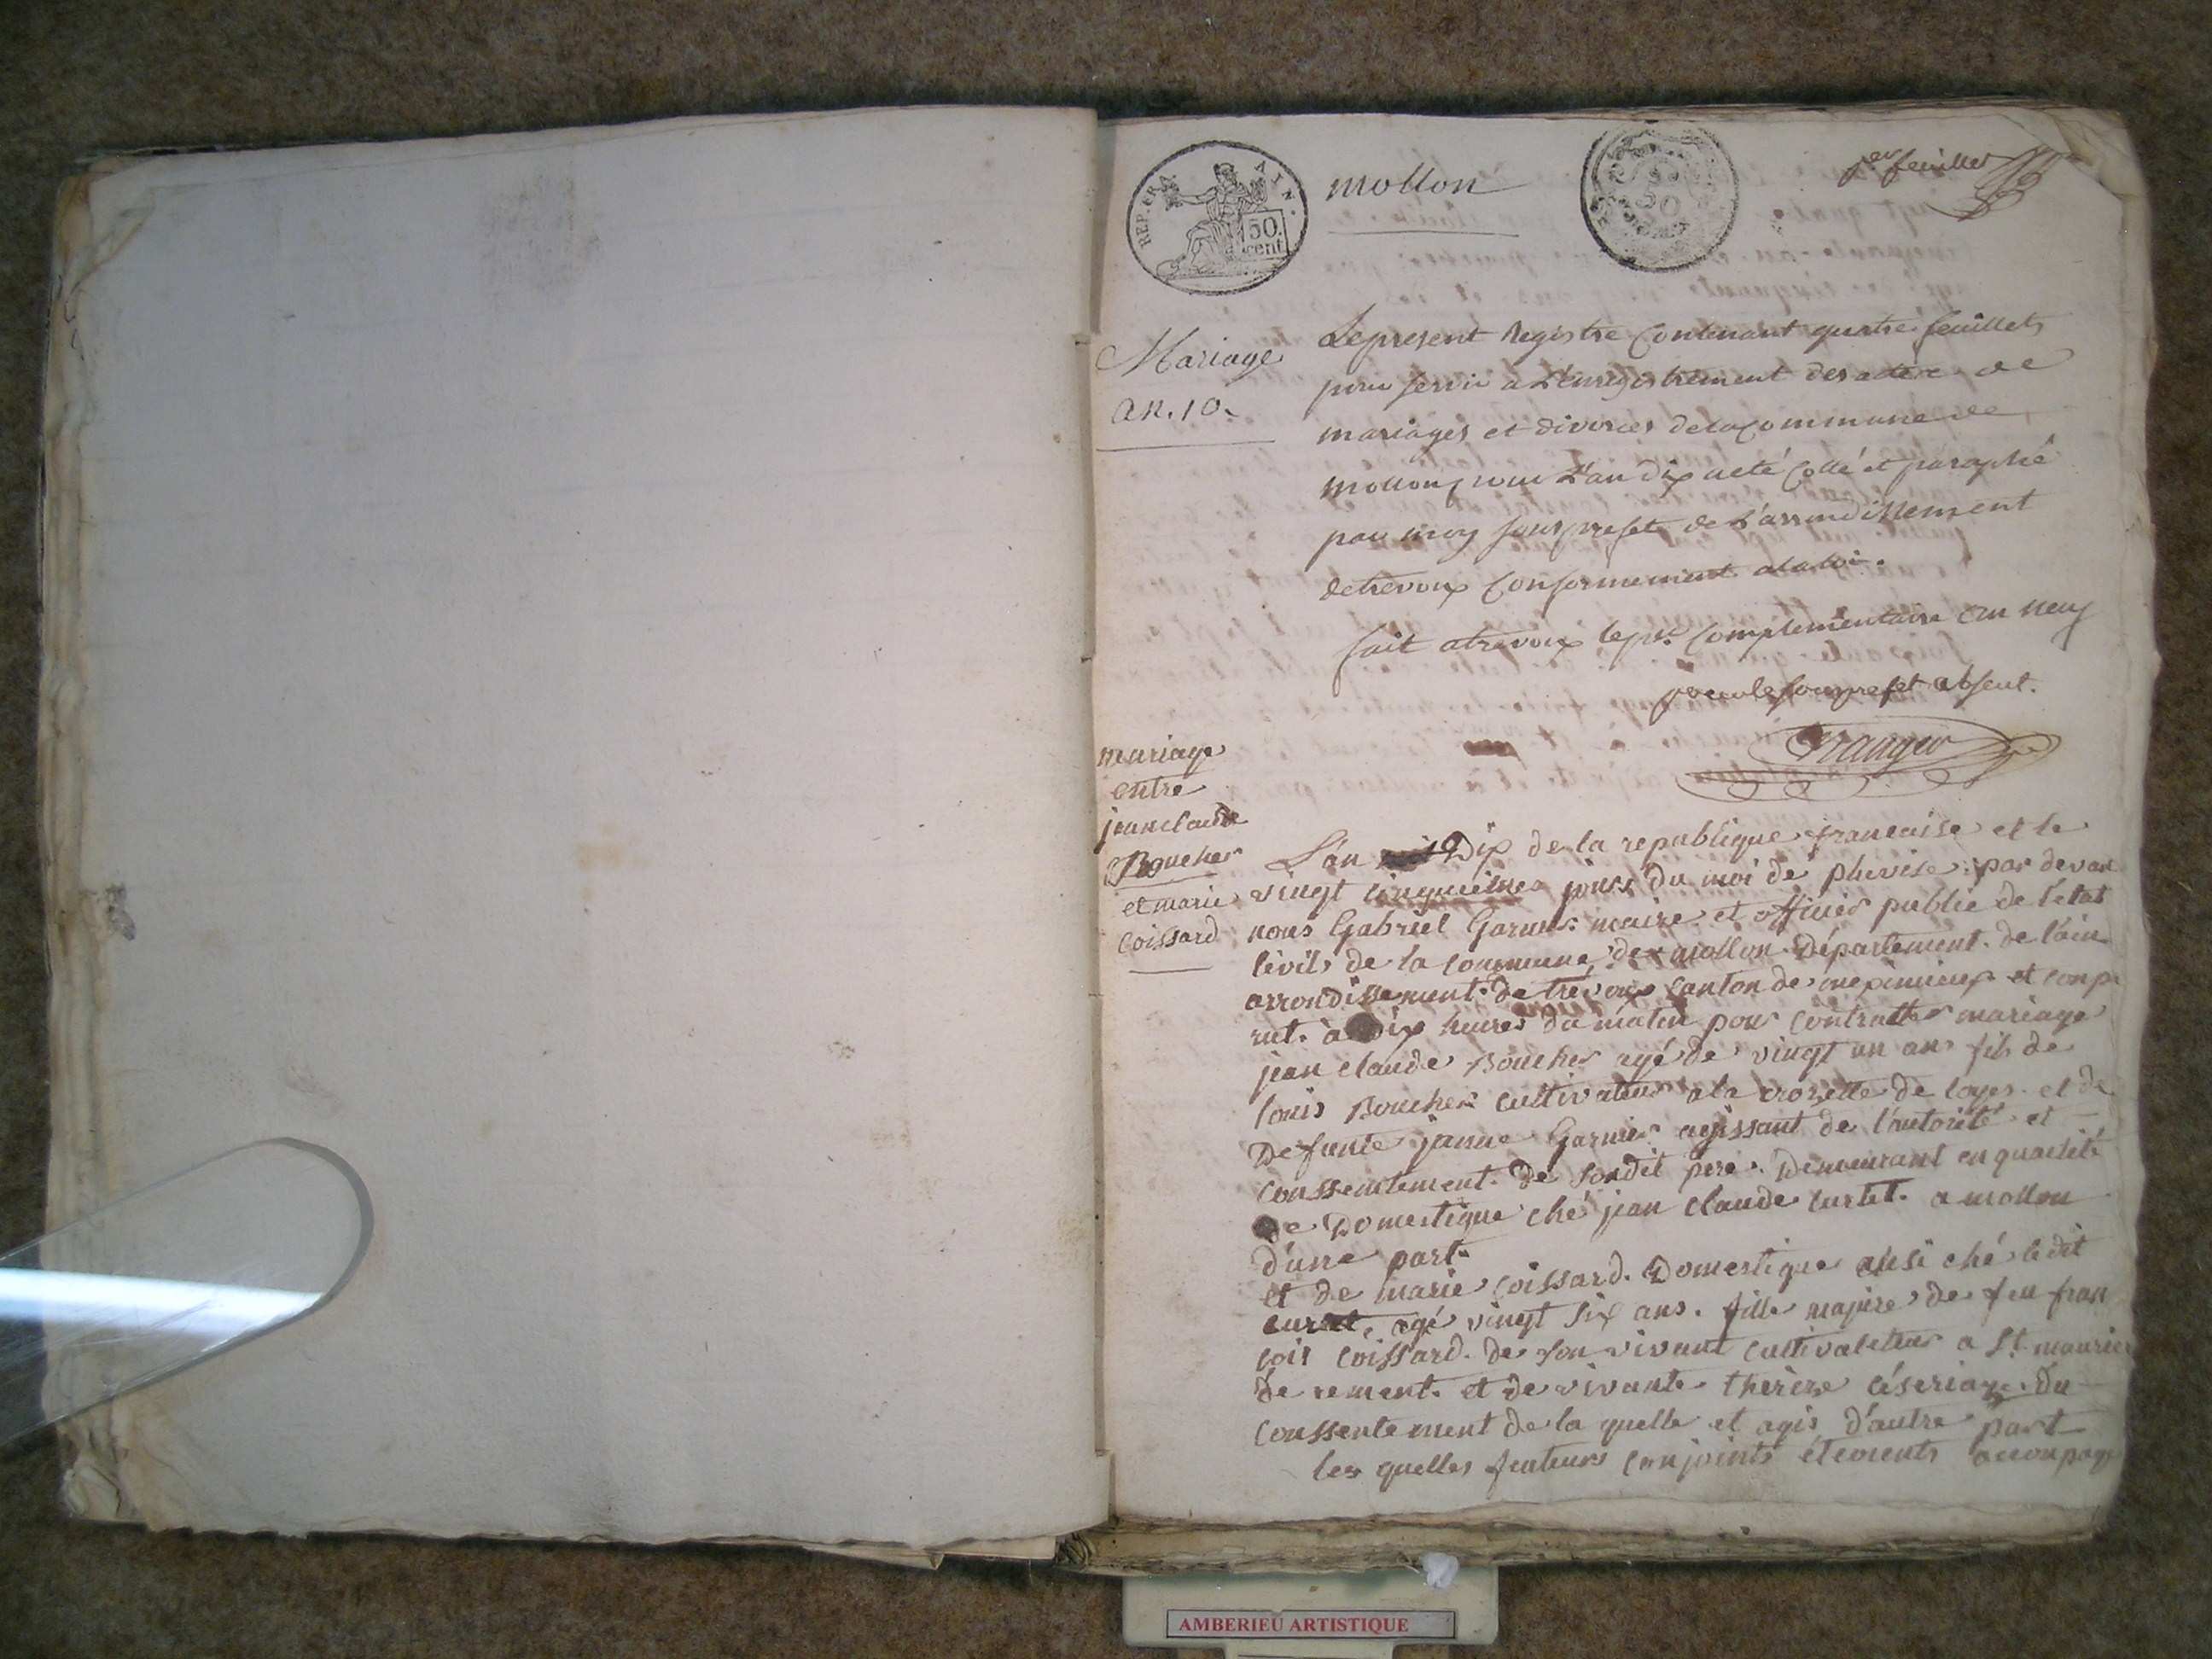 REP. FRA. AIN.
50
cent
mollon
50
1er feuillet
Mariage
an. 10.
Le present Registre Contenant quatre feuillets
pour servir a L'enregistrement des actes de
mariages et divorces delaCommune de
mollon pour L'an dix a eté Cotté et paraphé
par moy sousprefet de L'arrondissement
detrevoux Conformement alaloi.
fait atrevoux le pr. Complementaire an neuf
pour le sousprefet absent.
mariage
entre
jean claude
Boucher
et marie
Coissard
L'an Dix de la republique francaise et le
vingt cinquiemes jours du moi de pluvise par devan
nous Gabriel Garnier maire et officier public de l'etat
Civils de la Commune de mollon Département de l'ain
arrondissement de trevoux Canton de meximieux et Comp
rut à Dix heures du matin pour Contratter mariage
jean claude Boucher agé de vingt un ans fils de
louis Boucher cultivateur a la crozette de loyes et de
Defunte janne Garnier agissant de l'autorité et
Conssentement de sondit pere Demeurant en qualité
De Domestique ché jean claude curtet a mollon
d'une part
et de marie Coissard Domestique ausi ché ledit
curtet, agé vingt six ans fille majure de feu fran
cois Coissard de son vivant cultivateur a St mauric
de rement et de vivante thérèze Du
Conssentement de la quelle et agis d'autre part
les quelles futeurs Conjoints étevents accompag
AMBERIEU ARTISTIQUE